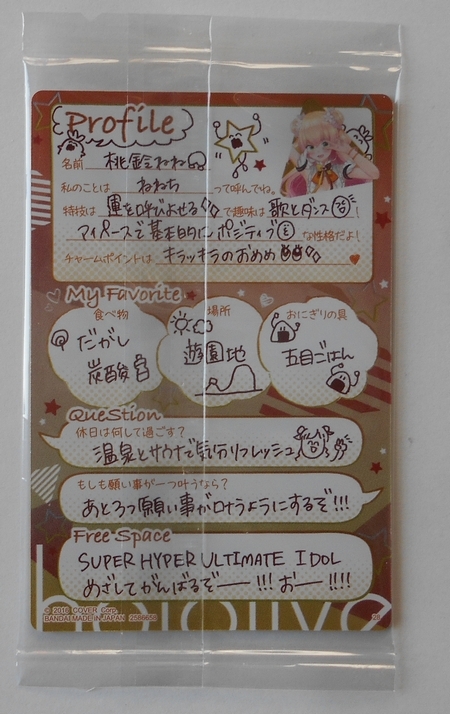 Profile
名前 桃鈴ねね
私のことは ねねち って呼んでね。
特技は 運を呼びよせる で趣味は 歌とダンス !
マイペースで基本的にポジティブ な性格だよ!
チャームポイントは キラッキラのおめめ
My Favorite
食べ物
だがし
炭酸
場所
遊園地
おにぎりの具
五目ごはん
QueStion
休日は何して過ごす?
温泉とサウナで気分リフレッシュ
もしも願い事が一つ叶うなら?
あと3つ願い事が叶うようにするぞ!!!
Free Space
SUPER HYPER ULTIMATE IDOL
めざしてがんばるぞー!!! おー!!!!
hololive
COVER Corp.
BANDAI MADE IN JAPAN